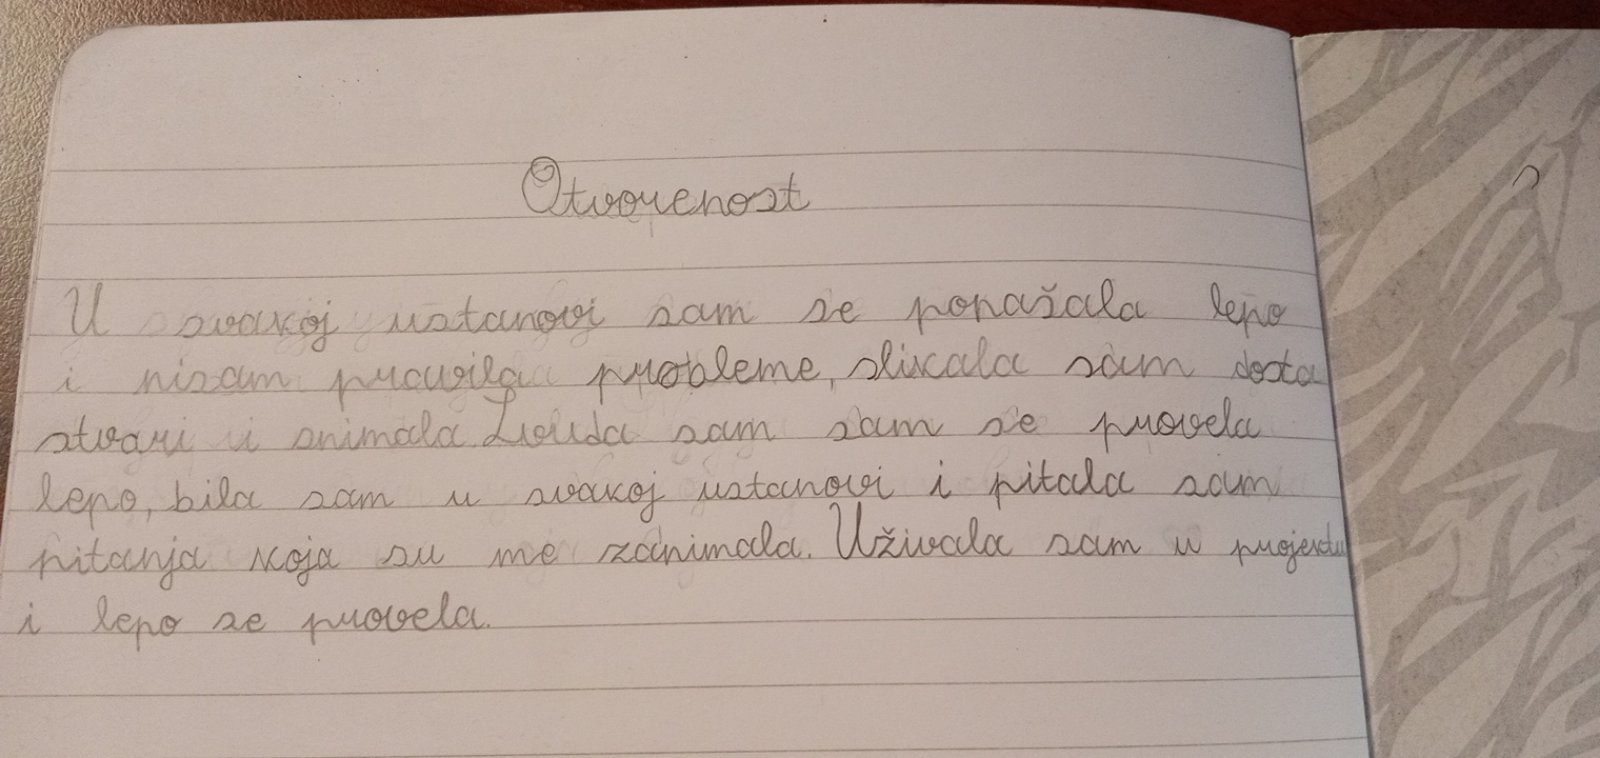 Otvorenost
U svakoj ustanovi sam se ponašala lepo
i nisam pravila probleme, slikala sam dosta
stvari i snimala. sam sam se provela
lepo, bila sam u svakoj ustanovi i pitala sam
pitanja koja su me zanimala. Uživala sam u projektu
i lepo se provela.